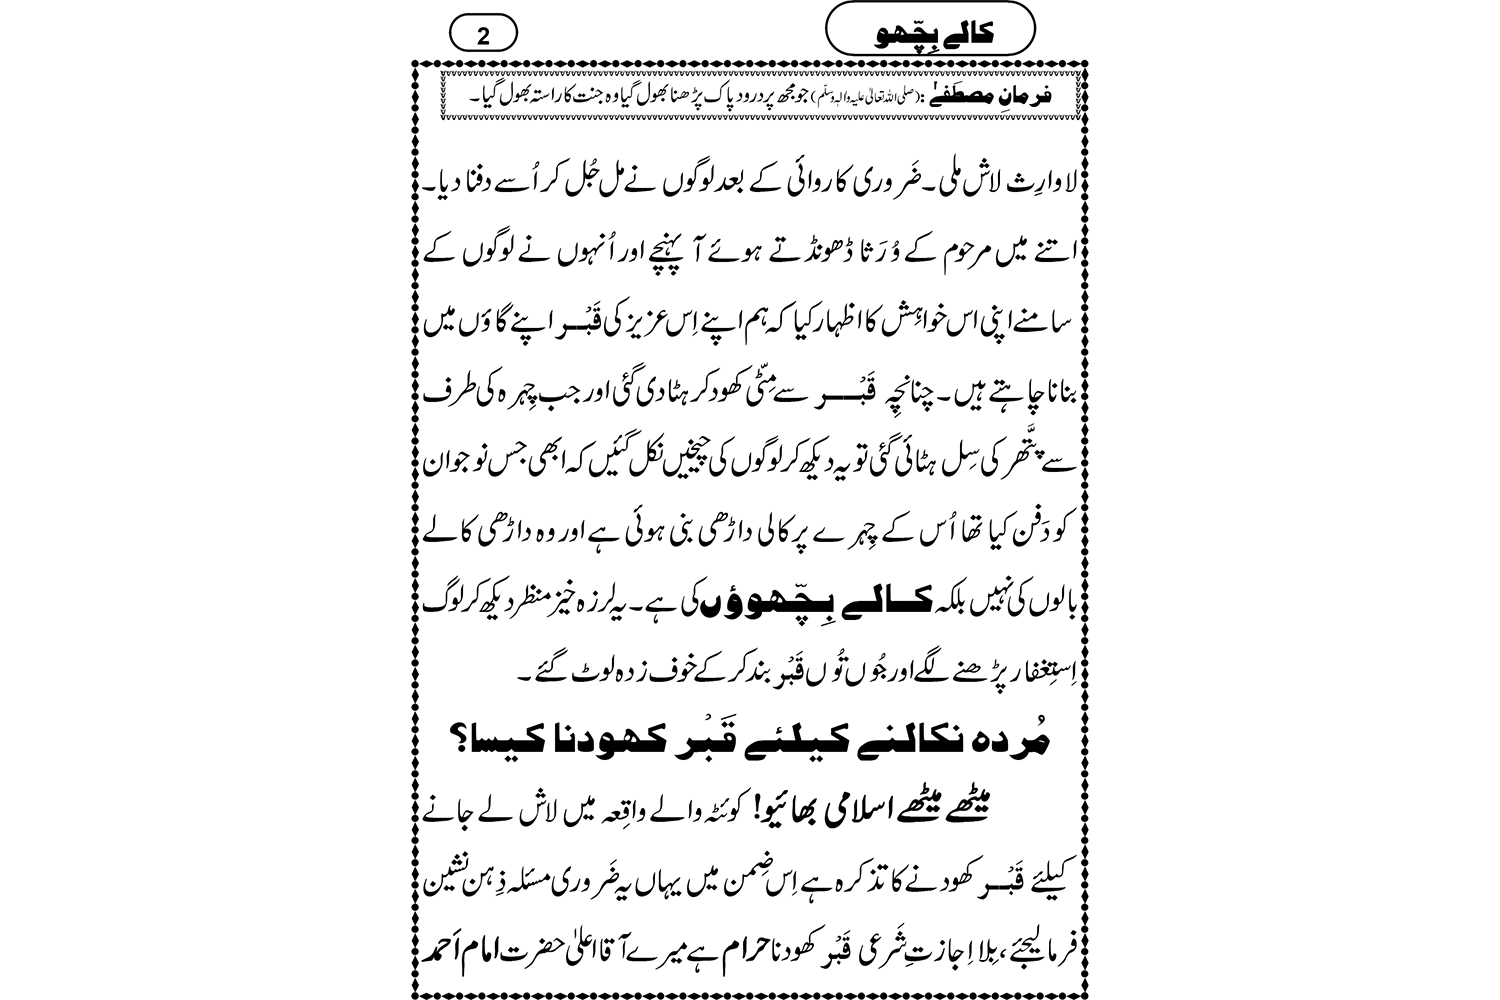 کالے بِچّھو
2
فرمانِ مصطَفٰے : (صلی اللہ تعالیٰ علیہ واٰلہٖ وسلّم) جو مجھ پر درود پاک پڑھنا بھول گیا وہ جنت کا راستہ بھول گیا۔
لاوارِث لاش ملی۔ ضَروری کاروائی کے بعد لوگوں نے مل جُل کر اُسے دفنا دیا۔
اتنے میں مرحوم کے وُرَثا ڈھونڈتے ہوئے آ پہنچے اور اُنہوں نے لوگوں کے
سامنے اپنی اس خواہِش کا اظہار کیا کہ ہم اپنے اِس عزیز کی قَبْر اپنے گاؤں میں
بنانا چاہتے ہیں۔ چنانچِہ قَبْر سے مِٹّی کھود کر ہٹا دی گئی اور جب چِہرہ کی طرف
سے پتَّھر کی سِل ہٹائی گئی تو یہ دیکھ کر لوگوں کی چیخیں نکل گئیں کہ ابھی جس نوجوان
کو دَفن کیا تھا اُس کے چِہرے پر کالی داڑھی بنی ہوئی ہے اور وہ داڑھی کالے
بالوں کی نہیں بلکہ کالے بِچّھوؤں کی ہے۔ یہ لرزہ خیز منظر دیکھ کر لوگ
اِستِغفار پڑھنے لگے اور جُوں تُوں قَبْر بند کر کے خوف زدہ لوٹ گئے۔
مُردہ نکالنے کیلئے قَبْر کھودنا کیسا؟
میٹھے میٹھے اسلامی بھائیو! کوئٹہ والے واقِعہ میں لاش لے جانے
کیلئے قَبْر کھودنے کا تذکرہ ہے اِس ضِمن میں یہاں یہ ضَروری مسئلہ ذِہن نشین
فرما لیجئے، بِلا اِجازتِ شَرعی قَبْر کھودنا حرام ہے میرے آقا اعلیٰ حضرت امام اَحمد